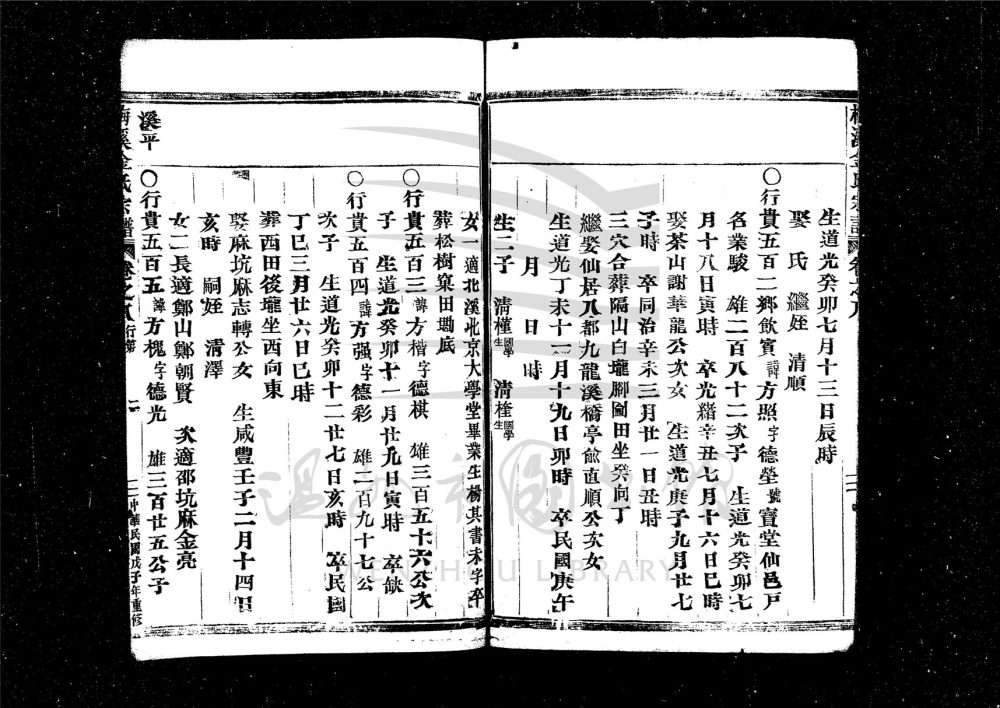 生道光癸卯七月十三日辰時
娶 氏 繼姪 清順
〇行貴五百二鄉飲賓諱方照字德瑩號寶堂仙邑戶
名業駿 雄二百八十二次子 生道光癸卯七
月十八日寅時 卒光緒辛丑七月十六日巳時
娶茶山謝華龍公次女 生道光庚子九月廿七
子時 卒同治辛未三月廿一日丑時
三穴合葬隔山白壠腳圖田坐癸向丁
繼娶仙居八都九龍溪橋亭俞直順公次女
生道光丁未十一月十九日卯時 卒民國庚午
月 日 時
生二子 清槿國學生 清楏國學生
女一適北溪北京大學堂畢業生楊其書未字卒
葬松樹窠田墈底
〇行貴五百三諱方楷字德棋 雄三百五十六公次
子 生道光癸卯十一月廿九日寅時 卒缺
〇行貴五百四諱方强字德彩 雄二百九十七公
次子 生道光癸卯十二廿七日亥時 卒民國
丁巳三月廿六日巳時
葬西田後壠坐西向東
娶麻坑麻志轉公女 生咸豐壬子二月十四日
亥時 嗣姪 清澤
女二長適鄭山鄭朝賢 次適邵坑麻金亮
〇行貴五百五諱方槐字德光 雄三百廿五公子
溪平
金氏宗譜 卷之八 行第 二 中華民國戊子年重修
WENZHOU LIBRARY